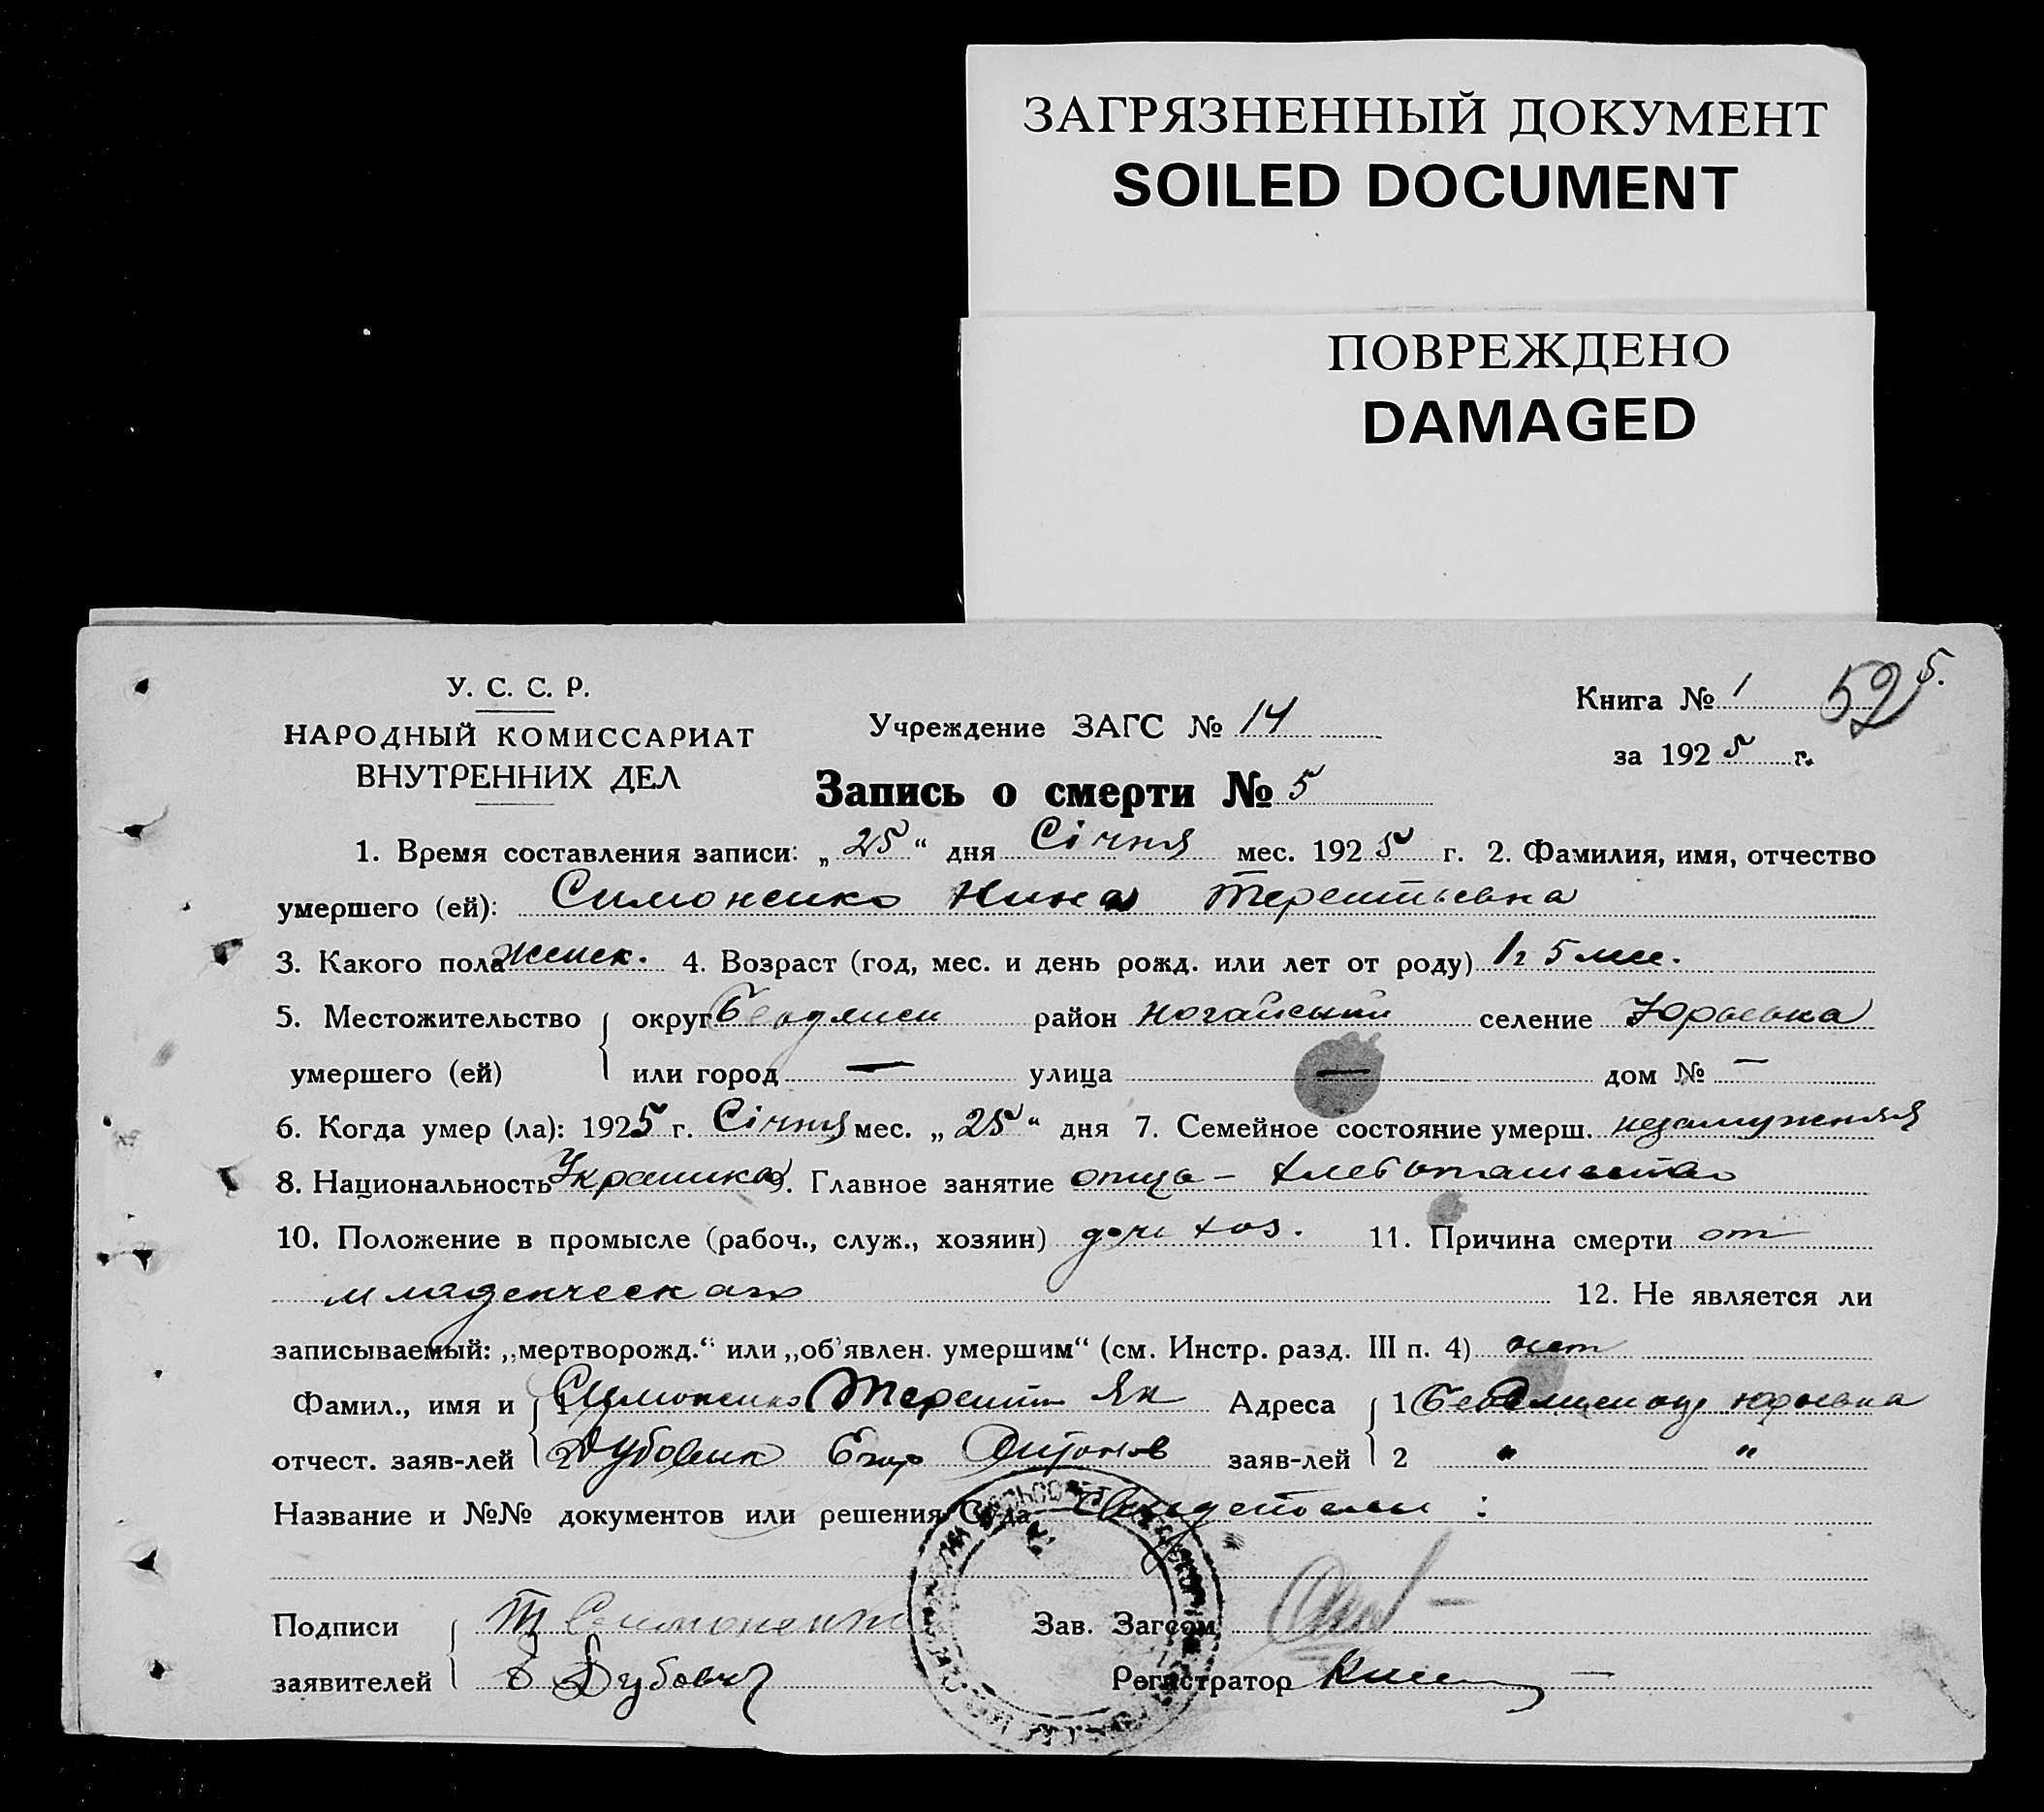 ЗАГРЯЗНЕННЫЙ ДОКУМЕНТ
SOILED DOCUMENT
ПОВРЕЖДЕНО
DAMAGED
У. С. С. Р.
НАРОДНЫЙ КОМИССАРИАТ
ВНУТРЕННИХ ДЕЛ
Учреждение ЗАГС № 14
Книга № 1
52
5.
за 1925 г.
Запись о смерти № 5
1. Время составления записи: „25“ дня Січня мес. 1925 г. 2. Фамилия, имя, отчество
умершего (ей): Симоненко Нина Терентьевна
3. Какого пола женск. 4. Возраст (год, мес. и день рожд. или лет от роду) 1 г 5 мес.
5. Местожительство округ район Ногайский селение Юрьевка
умершего (ей) или город — улица — дом № —
6. Когда умер (ла): 1925 г. Січня мес. „25“ дня 7. Семейное состояние умерш. незамужняя
8. Национальность Украинка 9. Главное занятие отца - хлебопашество
10. Положение в промысле (рабоч., служ., хозяин) дочь хоз. 11. Причина смерти от
младенческаго 12. Не является ли
записываемый: „мертворожд.“ или „об'явлен. умершим“ (см. Инстр. разд. III п. 4) нет
Фамил., имя и 1 Симоненко Терентий Як Адреса 1 Юрьевка
отчест. заяв-лей 2 Дубовик Егор Антонов заяв-лей 2 " "
Название и №№ документов или решения Суда Свидетели :
Подписи Т Симоненко Зав. Загсом
заявителей Е Дубовик Регистратор